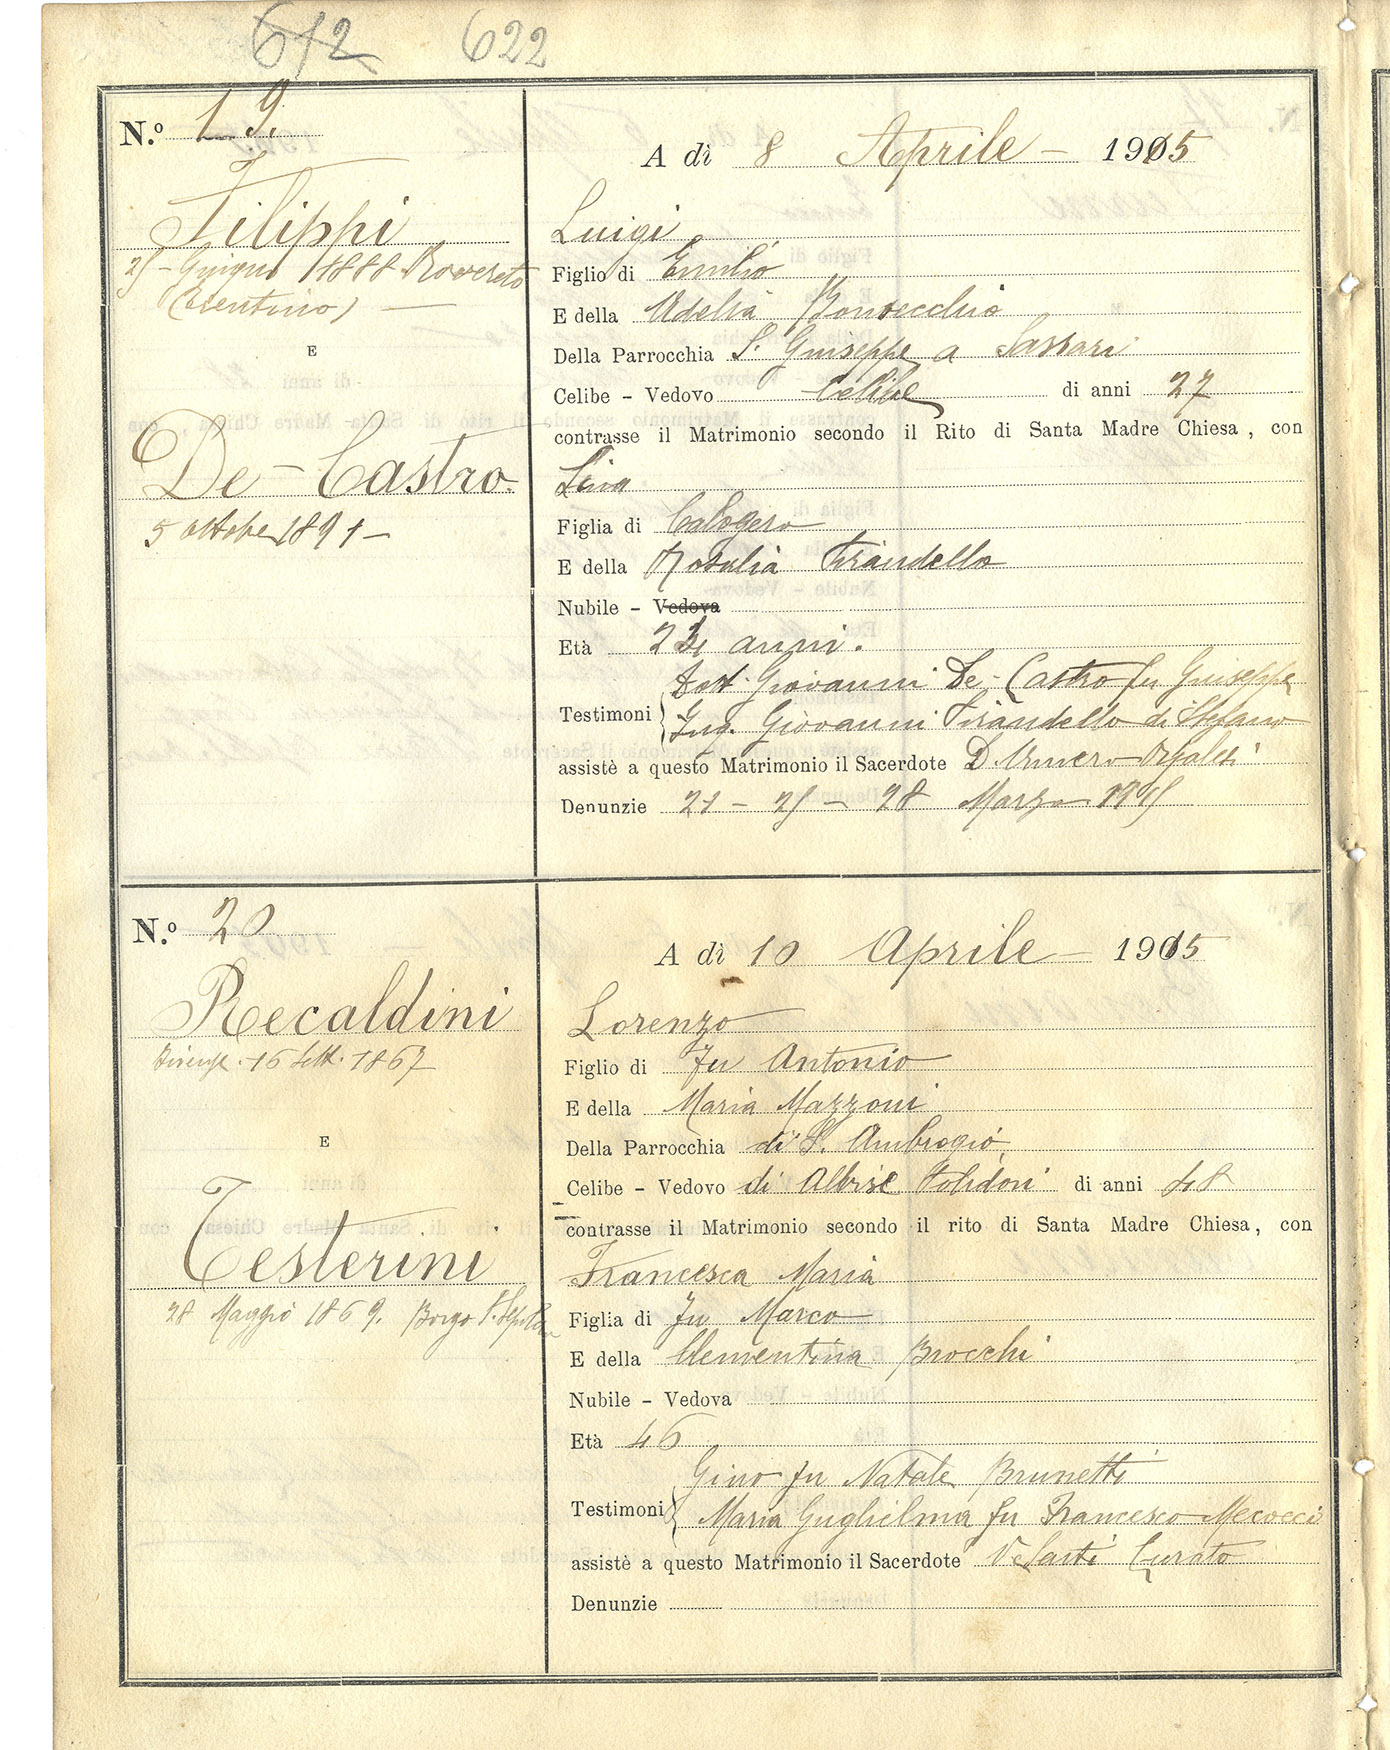 612 622
N.º 19.
A dì 8 Aprile 1915
Filippi
25 - Giugno 1888 Rovereto
(Trentino)
E
De-Castro
5 ottobre 1891
Luigi
Figlio di Emilio
E della Adelia Bonvecchio
Della Parrocchia S. Giuseppe a Sassari
Celibe - Vedovo Celibe di anni 27
contrasse il Matrimonio secondo il Rito di Santa Madre Chiesa, con
Lina
Figlia di Calogero
E della Rosalia Pirandello
Nubile - Vedova
Età anni.
Testimoni Dott. Giovanni De-Castro fu Giuseppe
Ing. Giovanni Pirandello di Stefano
assistè a questo Matrimonio il Sacerdote D.
Denunzie 21 - 25 - 28 Marzo 1915
N.º 20
A dì 10 Aprile 1915
Recaldini
Firenze. 16 Sett. 1867
E
Testerini
28 Maggio 1869. Borgo S. Sepolcro
Lorenzo
Figlio di Fu Antonio
E della Maria Mazzoni
Della Parrocchia di S. Ambrogio
Celibe - Vedovo di Albise Polidori di anni 48
contrasse il Matrimonio secondo il rito di Santa Madre Chiesa, con
Francesca Maria
Figlia di Fu Marco
E della Clementina Brocchi
Nubile - Vedova
Età 46
Testimoni Gino fu Natale Brunetti
Maria Guglielma fu Francesco Mecocci
assistè a questo Matrimonio il Sacerdote Curato
Denunzie